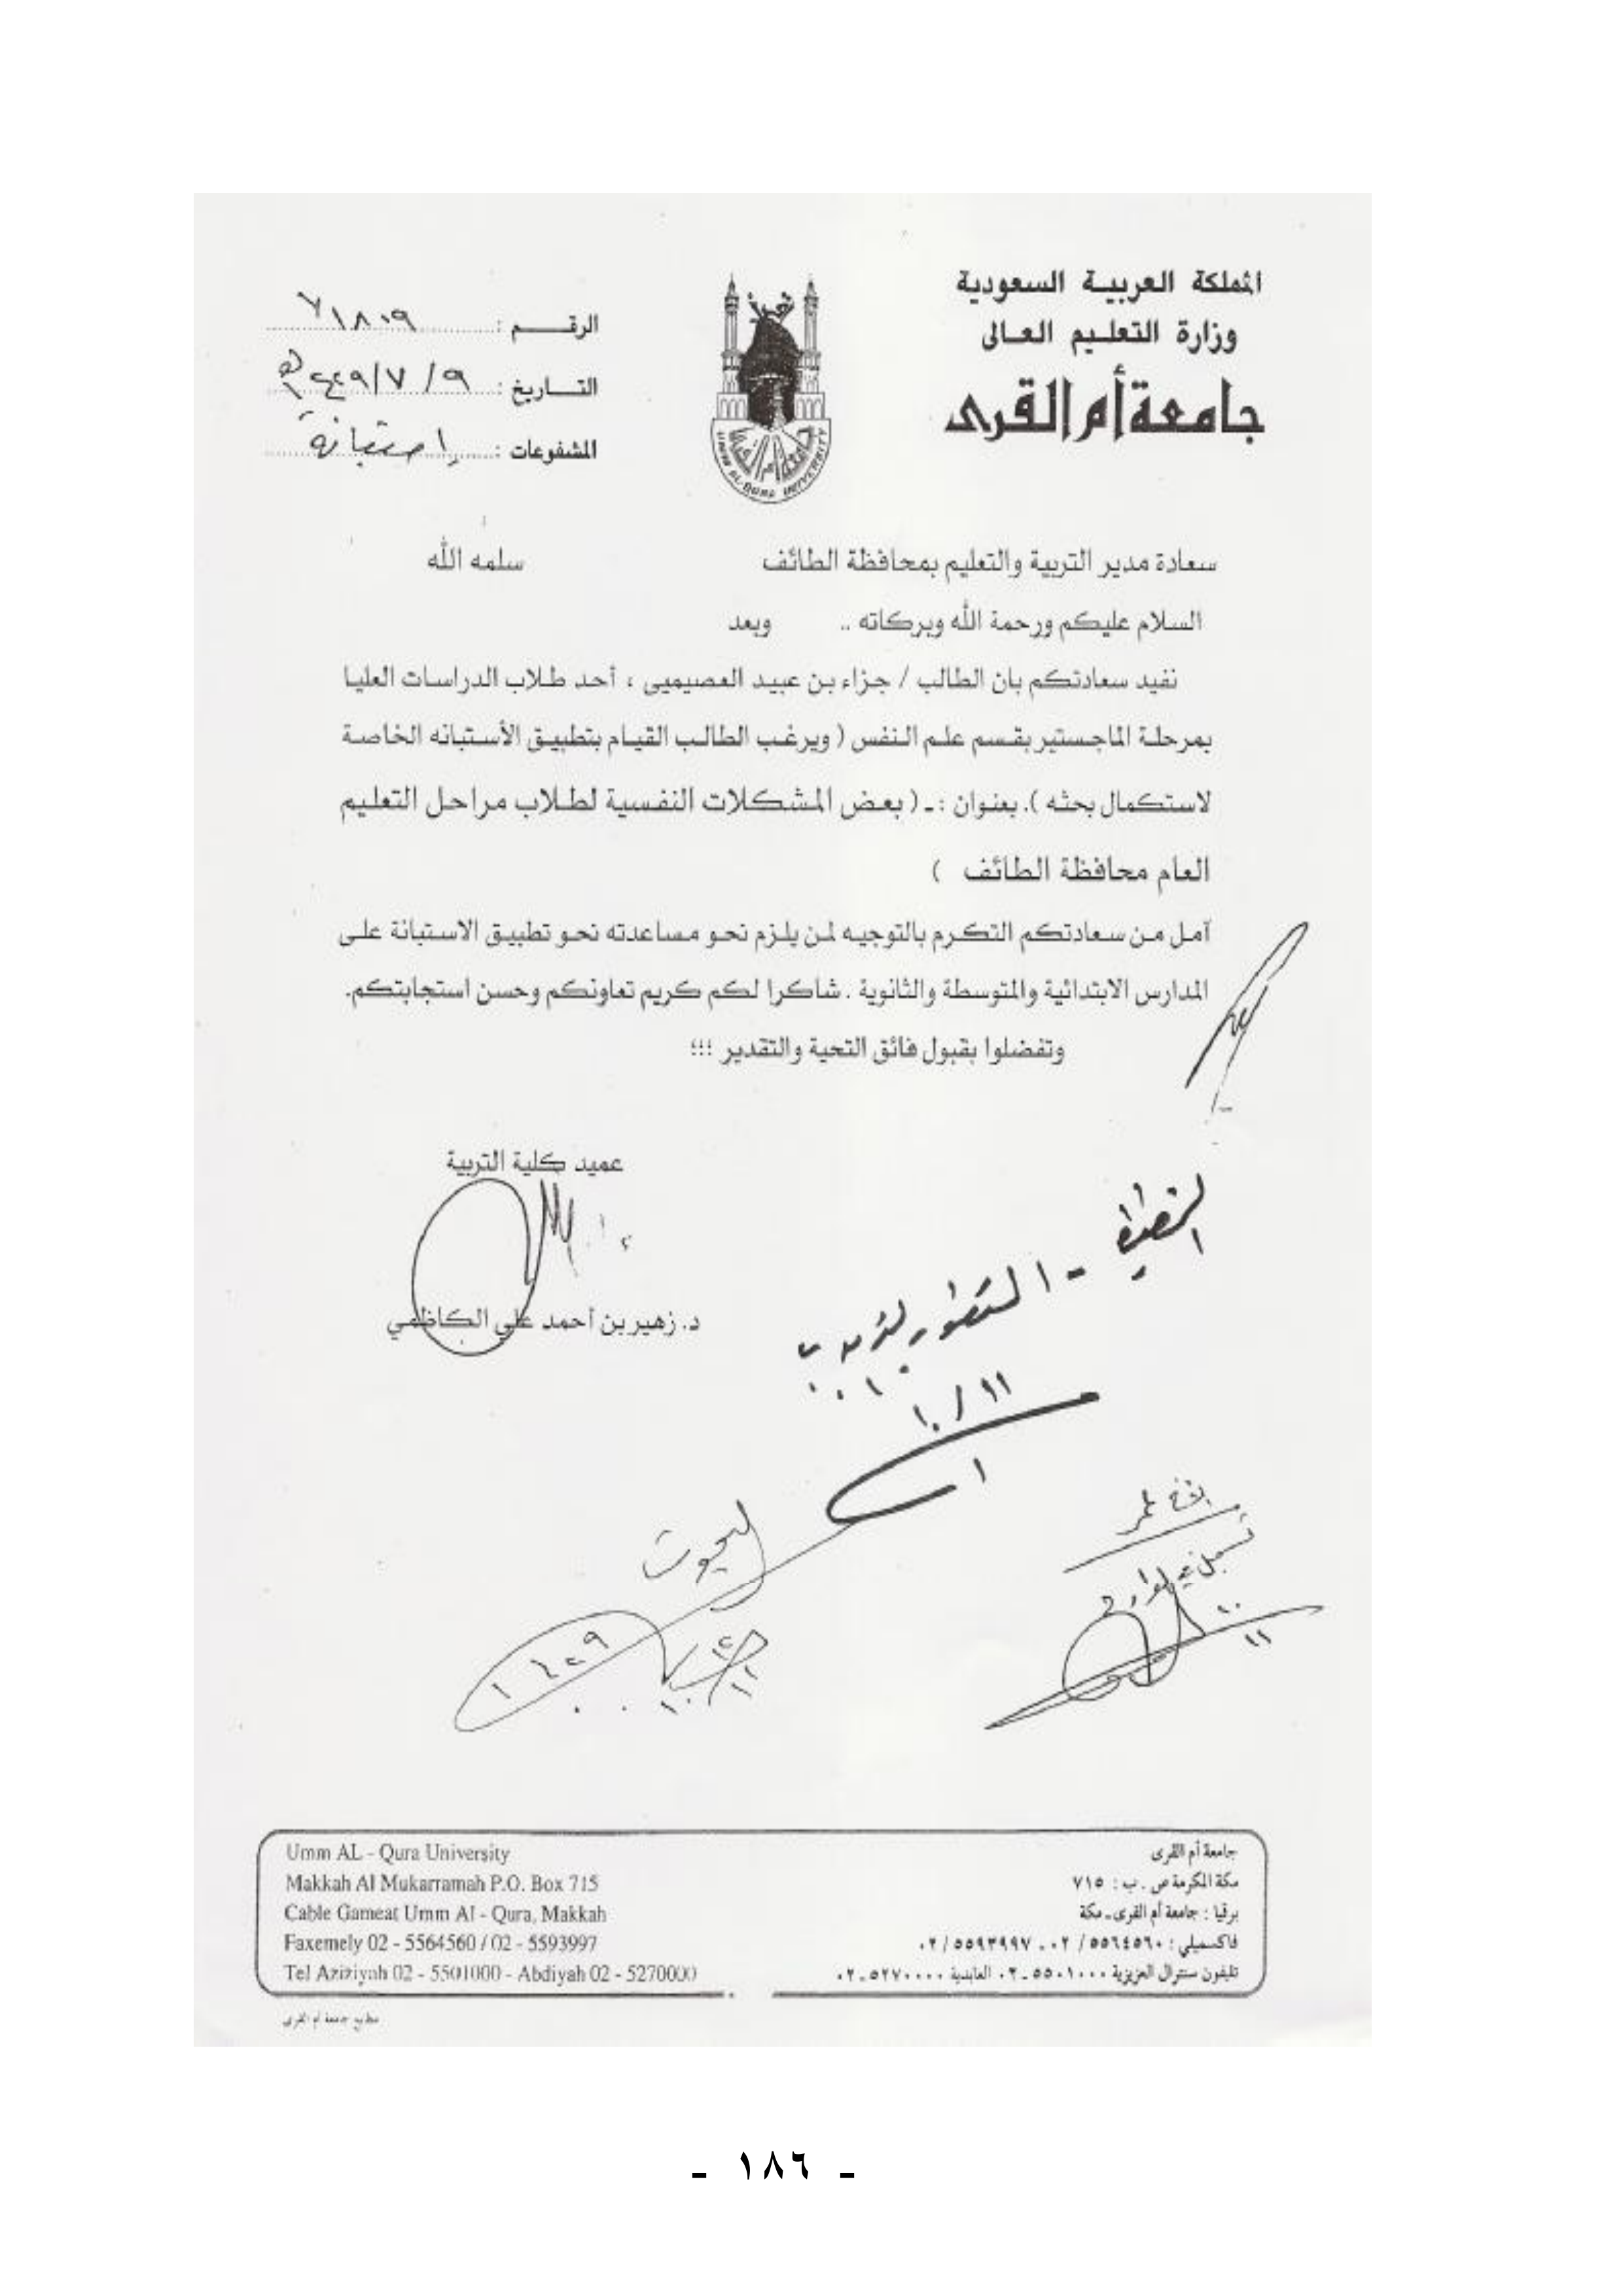 المملكة العربية السعودية
وزارة التعليم العالى
جامعة أم القرى
الرقم : ٧١٨٠٩
التاريخ : ٩ / ٧ / ١٤٢٩هـ
المشفوعات : إستبانة
UMM AL-QURA UNIVERSITY
سعادة مدير التربية والتعليم بمحافظة الطائف سلمه الله
السلام عليكم ورحمة الله وبركاته .. وبعد
نفيد سعادتكم بان الطالب / جزاء بن عبيد العصيمي ، أحد طلاب الدراسات العليا
بمرحلة الماجستير بقسم علم النفس ( ويرغب الطالب القيام بتطبيق الأستبانه الخاصة
لاستكمال بحثه ). بعنوان : ـ ( بعض المشكلات النفسية لطلاب مراحل التعليم
العام محافظة الطائف )
آمل من سعادتكم التكرم بالتوجيه لمن يلزم نحو مساعدته نحو تطبيق الاستبانة على
المدارس الابتدائية والمتوسطة والثانوية . شاكرا لكم كريم تعاونكم وحسن استجابتكم.
وتفضلوا بقبول فائق التحية والتقدير !!!
عميد كلية التربية
د. زهير بن أحمد علي الكاظمي
١١ / ١٠
١٤٢٩
Umm AL - Qura University
Makkah Al Mukarramah P.O. Box 715
Cable Gameat Umm Al - Qura, Makkah
Faxemely 02 - 5564560 / 02 - 5593997
Tel Aziziyah 02 - 5501000 - Abdiyah 02 - 5270000
جامعة أم القرى
مكة المكرمة ص . ب : ٧١٥
برقيا : جامعة أم القرى ـ مكة
فاكسميلي : ٥٥٦٤٥٦٠ / ٠٢ ـ ٥٥٩٣٩٩٧ / ٠٢
تليفون سنترال العزيزية ٥٥٠١٠٠٠ ـ ٠٢ العابدية ٥٢٧٠٠٠٠ ـ ٠٢
مطابع جامعة أم القرى
- ١٨٦ -